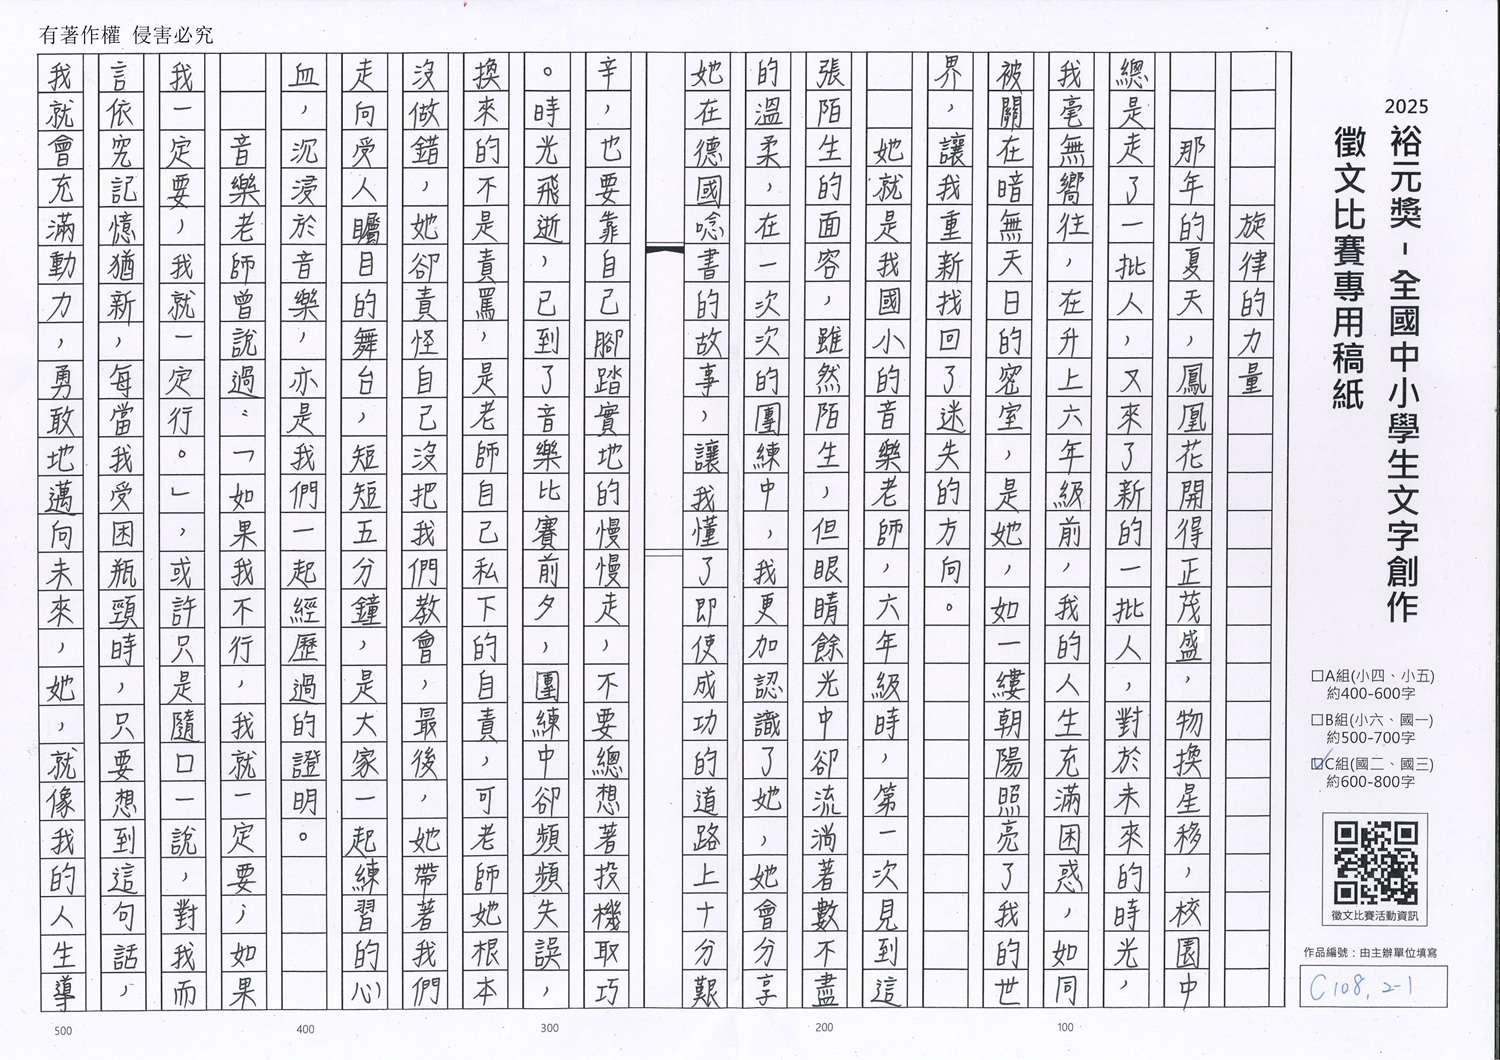 有著作權 侵害必究
2025
裕元獎-全國中小學生文字創作
徵文比賽專用稿紙
□A組(小四、小五)
約400-600字
□B組(小六、國一)
約500-700字
☑C組(國二、國三)
約600-800字
徵文比賽活動資訊
作品編號：由主辦單位填寫
C108, 2-1
旋律的力量
那年的夏天，鳳凰花開得正茂盛，物換星移，校園中
總是走了一批人，又來了新的一批人，對於未來的時光，
我毫無嚮往，在升上六年級前，我的人生充滿困惑，如同
被關在暗無天日的密室，是她，如一縷朝陽照亮了我的世
界，讓我重新找回了迷失的方向。
她就是我國小的音樂老師，六年級時，第一次見到這
張陌生的面容，雖然陌生，但眼睛餘光中卻流淌著數不盡
的溫柔，在一次次的團練中，我更加認識了她，她會分享
她在德國唸書的故事，讓我懂了即使成功的道路上十分艱
辛，也要靠自己腳踏實地的慢慢走，不要總想著投機取巧
。時光飛逝，已到了音樂比賽前夕，團練中卻頻頻失誤，
換來的不是責罵，是老師自己私下的自責，可老師她根本
沒做錯，她卻責怪自己沒把我們教會，最後，她帶著我們
走向受人矚目的舞台，短短五分鐘，是大家一起練習的心
血，沉浸於音樂，亦是我們一起經歷過的證明。
音樂老師曾說過：「如果我不行，我就一定要；如果
我一定要，我就一定行。」，或許只是隨口一說，對我而
言依究記憶猶新，每當我受困瓶頸時，只要想到這句話，
我就會充滿動力，勇敢地邁向未來，她，就像我的人生導
100
200
300
400
500